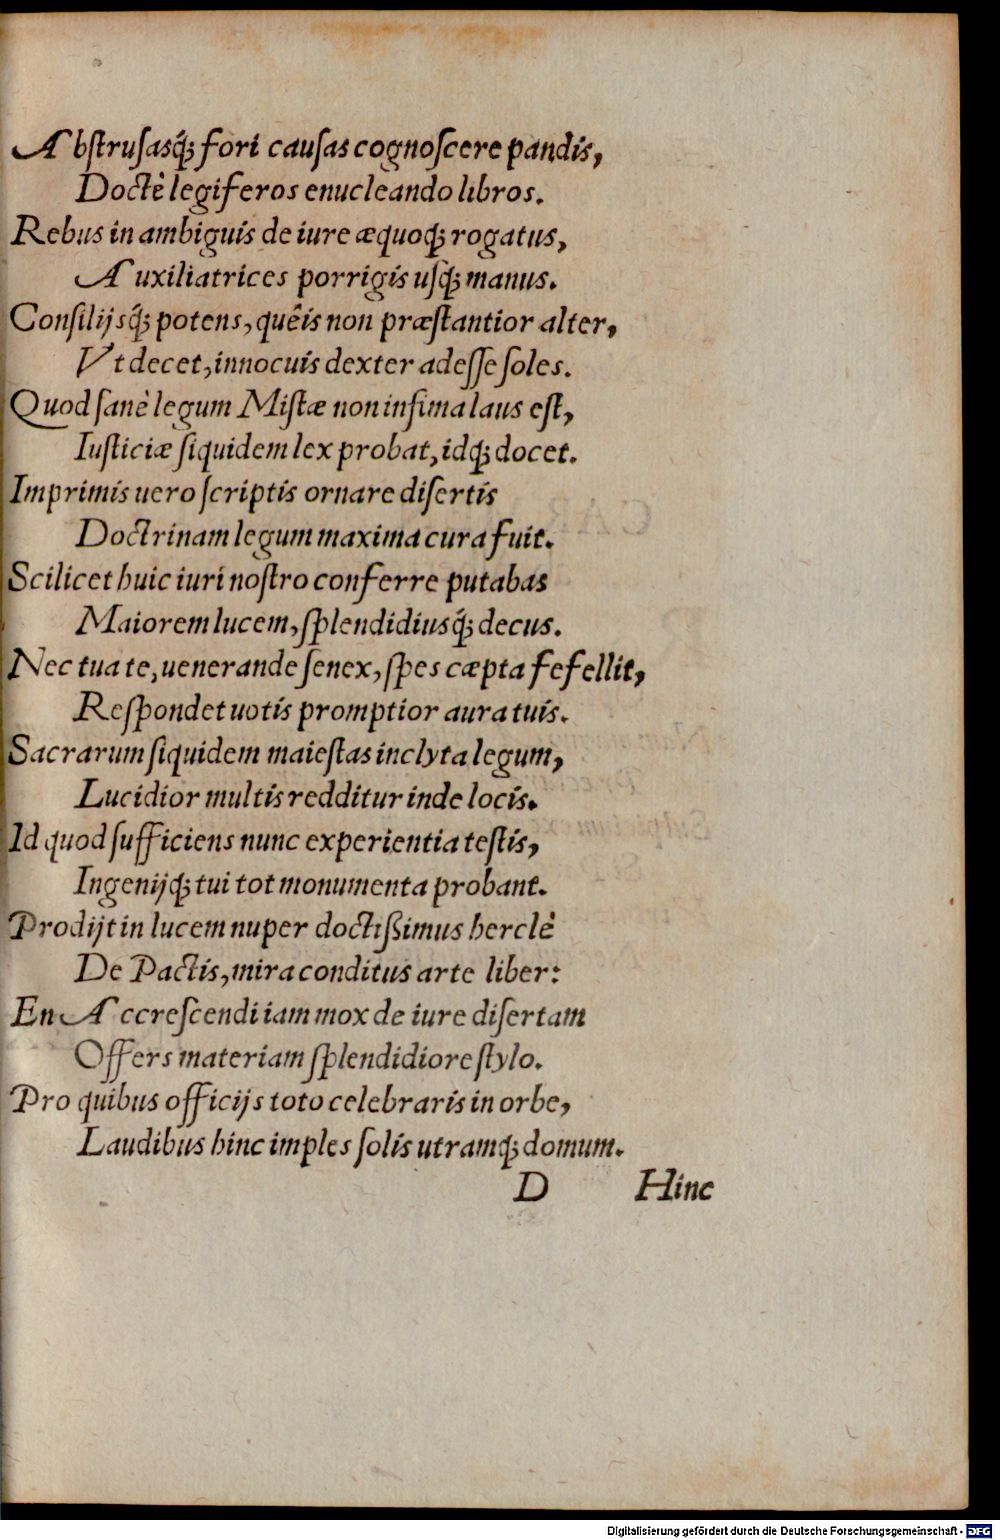 Abſtruſasq́; fori cauſas cognoſcere pandis,
Doctè legiferos enucleando libros.
Rebus in ambiguis de iure æquoq; rogatus,
Auxiliatrices porrigis uſq; manus.
Conſilijsq́; potens, quêis non præſtantior alter,
Vt decet, innocuis dexter adeſſe ſoles.
Quod ſanè legum Miſtæ non infima laus eſt,
Iuſticiæ ſiquidem lex probat, idq; docet.
Imprimis uero ſcriptis ornare diſertis
Doctrinam legum maxima cura fuit.
Scilicet huic iuri noſtro conferre putabas
Maiorem lucem, ſplendidiusq́; decus.
Nec tua te, uenerande ſenex, ſpes cæpta fefellit,
Reſpondet uotis promptior aura tuis.
Sacrarum ſiquidem maieſtas inclyta legum,
Lucidior multis redditur inde locis.
Id quod ſufficiens nunc experientia teſtis,
Ingenijq; tui tot monumenta probant.
Prodijt in lucem nuper doctißimus herclè
De Pactis, mira conditus arte liber:
En Accreſcendi iam mox de iure diſertam
Offers materiam ſplendidiore ſtylo.
Pro quibus officijs toto celebraris in orbe,
Laudibus hinc imples ſolis utramq; domum.
D Hinc
Digitalisierung gefördert durch die Deutsche Forschungsgemeinschaft - DFG